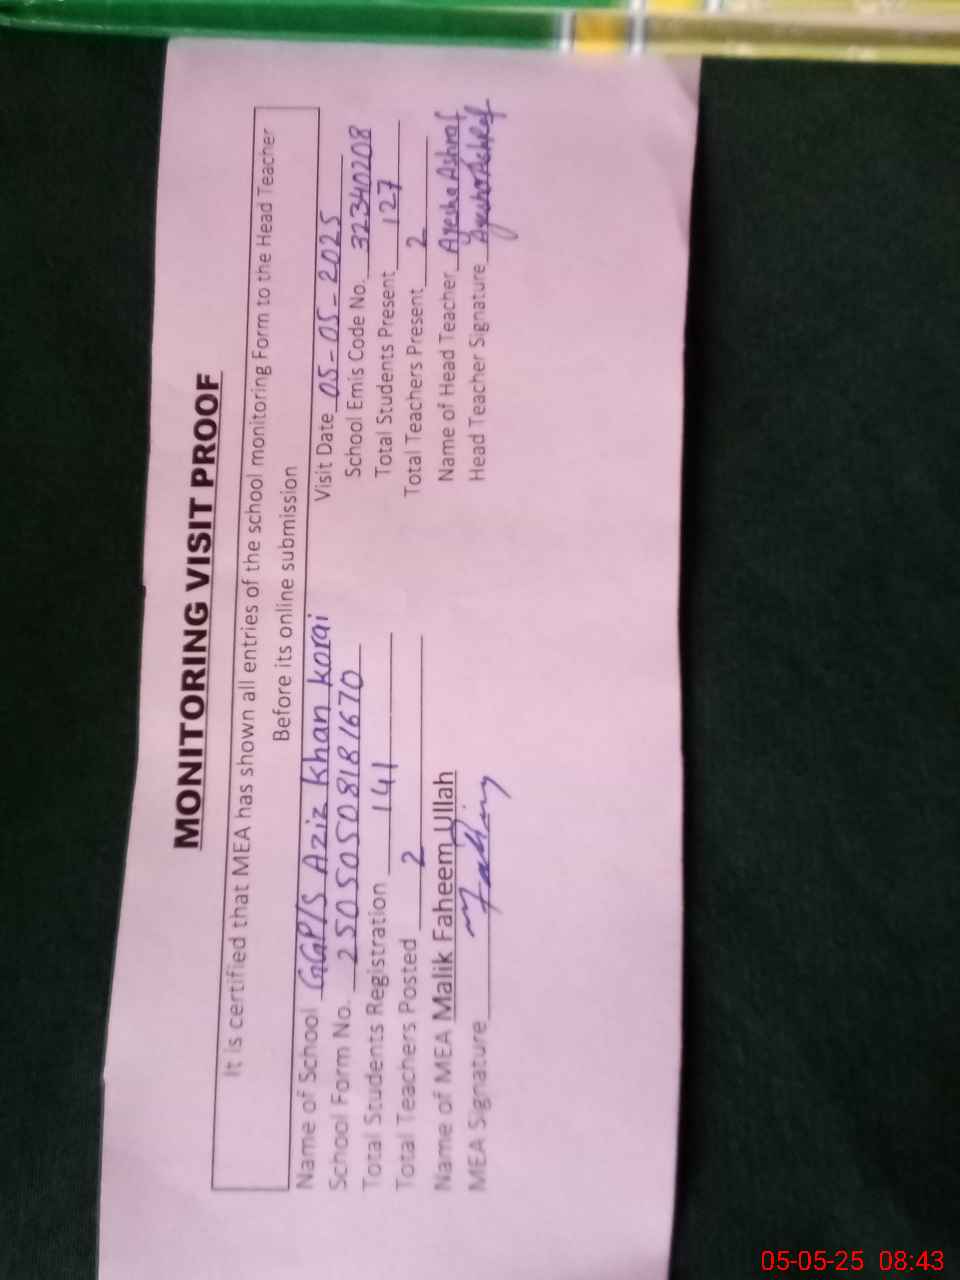 MONITORING VISIT PROOF
It is certified that MEA has shown all entries of the school monitoring Form to the Head Teacher
Before its online submission
Name of School GGP/S Aziz Khan Korai Visit Date 05-05-2025
School Form No. 25050508181670 School Emis Code No. 32340208
Total Students Registration 141 Total Students Present 127
Total Teachers Posted 2 Total Teachers Present 2
Name of MEA Malik Faheem Ullah Name of Head Teacher Ayesha Ashraf
MEA Signature Head Teacher Signature Ayesha Ashraf
05-05-25 08:43